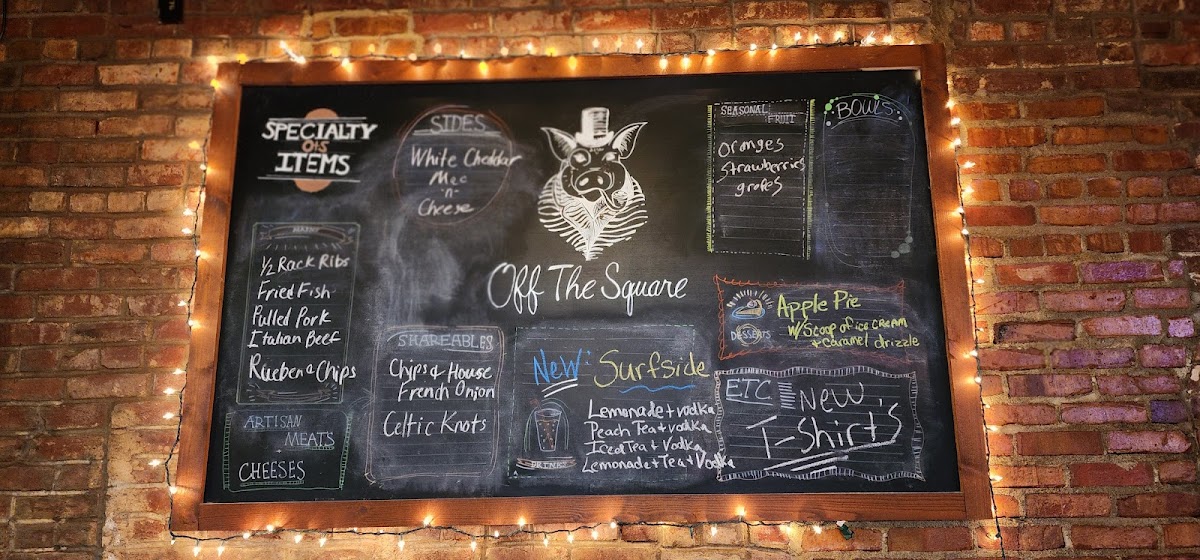 SPECIALTY
OTS
ITEMS
MAINS
1/2 Rack Ribs
Fried Fish
Pulled Pork
Italian Beef
Rueben & Chips
ARTISAN
MEATS
+
CHEESES
SIDES
White Cheddar
Mac
-n-
Cheese
SHAREABLES
Chips & House
French Onion
Celtic Knots
Off The Square
NEW: Surfside
Lemonade + vodka
Peach Tea + Vodka
Iced Tea + Vodka
Lemonade + Tea + Vodka
DRINKS
SEASONAL
FRUIT
Oranges
Strawberries
grapes
BOWLS
DESSERTS
Apple Pie
W/ Scoop of ice cream
+ caramel drizzle
ETC
NEW
T-Shirt's